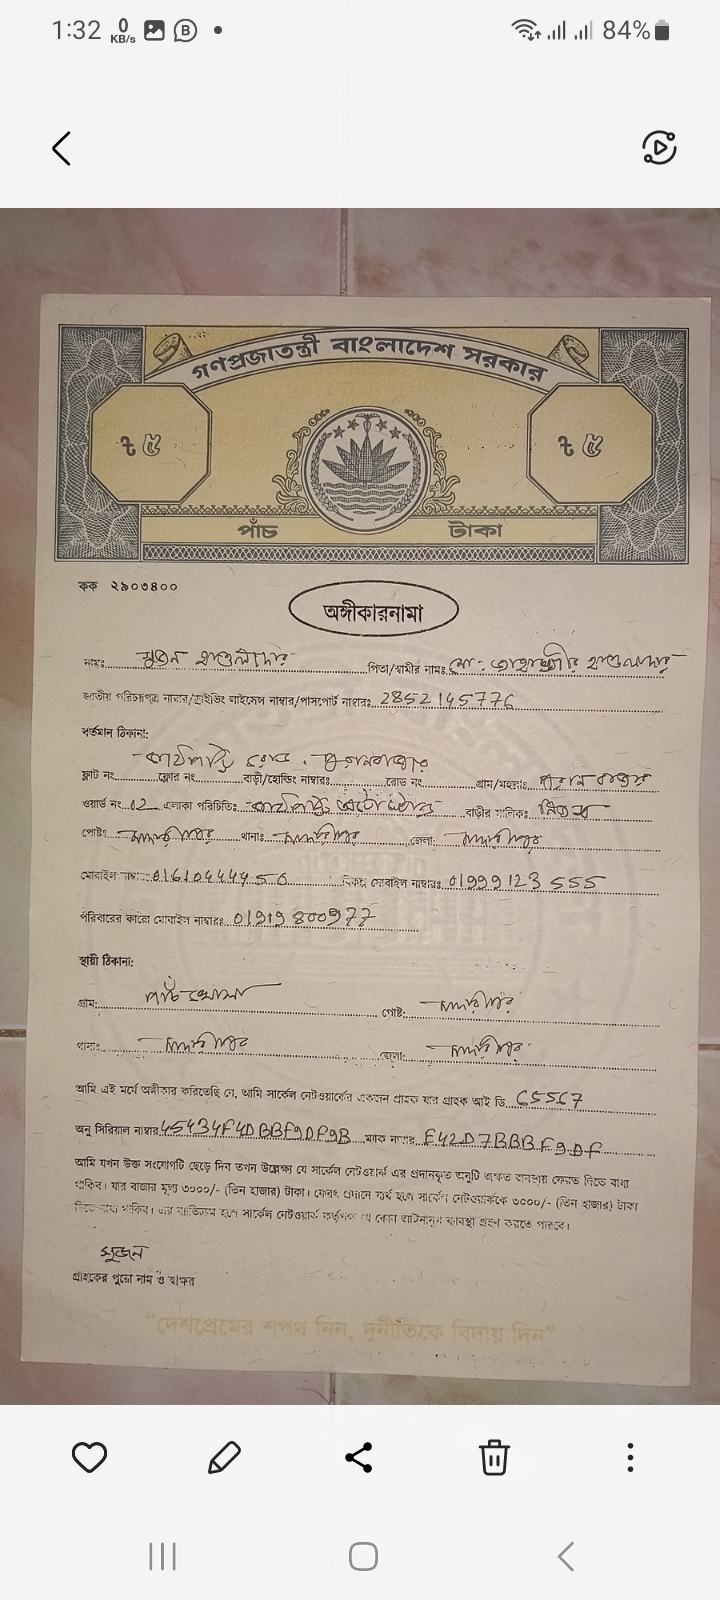 1:32 0 KB/s B 84%
গণপ্রজাতন্ত্রী বাংলাদেশ সরকার
৳ ৫ ৳ ৫
পাঁচ টাকা
কক ২৯০৩৪০০
অঙ্গীকারনামা
নামঃ সুজন হাওলাদার পিতা/স্বামীর নামঃ মো: জাহাঙ্গীর হাওলাদার
জাতীয় পরিচয়পত্র নাম্বার/ড্রাইভিং লাইসেন্স নাম্বার/পাসপোর্ট নাম্বারঃ 2852145776
বর্তমান ঠিকানা:
রোড, পুরানবাজার
ফ্লাট নং ফ্লোর নং বাড়ী/হোল্ডিং নাম্বারঃ রোড নং গ্রাম/মহল্লাঃ পুরান বাজার
ওয়ার্ড নং 02 এলাকা পরিচিতিঃ বাড়ীর মালিকঃ নিজস্ব
পোষ্টঃ মাদারীপুর থানাঃ মাদারীপুর জেলা: মাদারীপুর
মোবাইল নাম্বারঃ 01610444950 বিকল্প মোবাইল নাম্বারঃ 01999123555
পরিবারের কারো মোবাইল নাম্বারঃ 01919800977
স্থায়ী ঠিকানা:
গ্রাম: পাঁচখোলা পোষ্ট: মাদারীপুর
থানাঃ মাদারীপুর জেলা: মাদারীপুর
আমি এই মর্মে অঙ্গীকার করিতেছি যে, আমি সার্কেল নেটওয়ার্কের একজন গ্রাহক যার গ্রাহক আই ডি C5567
অনু সিরিয়াল নাম্বার 45434F4DBBF9DF9B ম্যাক নাম্বার F42D7BBBF9DF
আমি যখন উক্ত সংযোগটি ছেড়ে দিব তখন উল্লেক্ষ্য যে সার্কেল নেটওয়ার্ক এর প্রদানকৃত অনুটি অক্ষত অবস্থায় ফেরত দিতে বাধ্য
থাকিব। যার বাজার মূল্য ৩০০০/- (তিন হাজার) টাকা। ফেরৎ প্রদানে ব্যর্থ হলে সার্কেল নেটওয়ার্ককে ৩০০০/- (তিন হাজার) টাকা
দিতে বাধ্য থাকিব। এর ব্যতিক্রম হলে সার্কেল নেটওয়ার্ক কর্তৃপক্ষ যে কোন আইনানুগ ব্যবস্থা গ্রহণ করতে পারবে।
সুজন
গ্রাহকের পুরো নাম ও স্বাক্ষর
"দেশপ্রেমের শপথ নিন, দুর্নীতিকে বিদায় দিন"